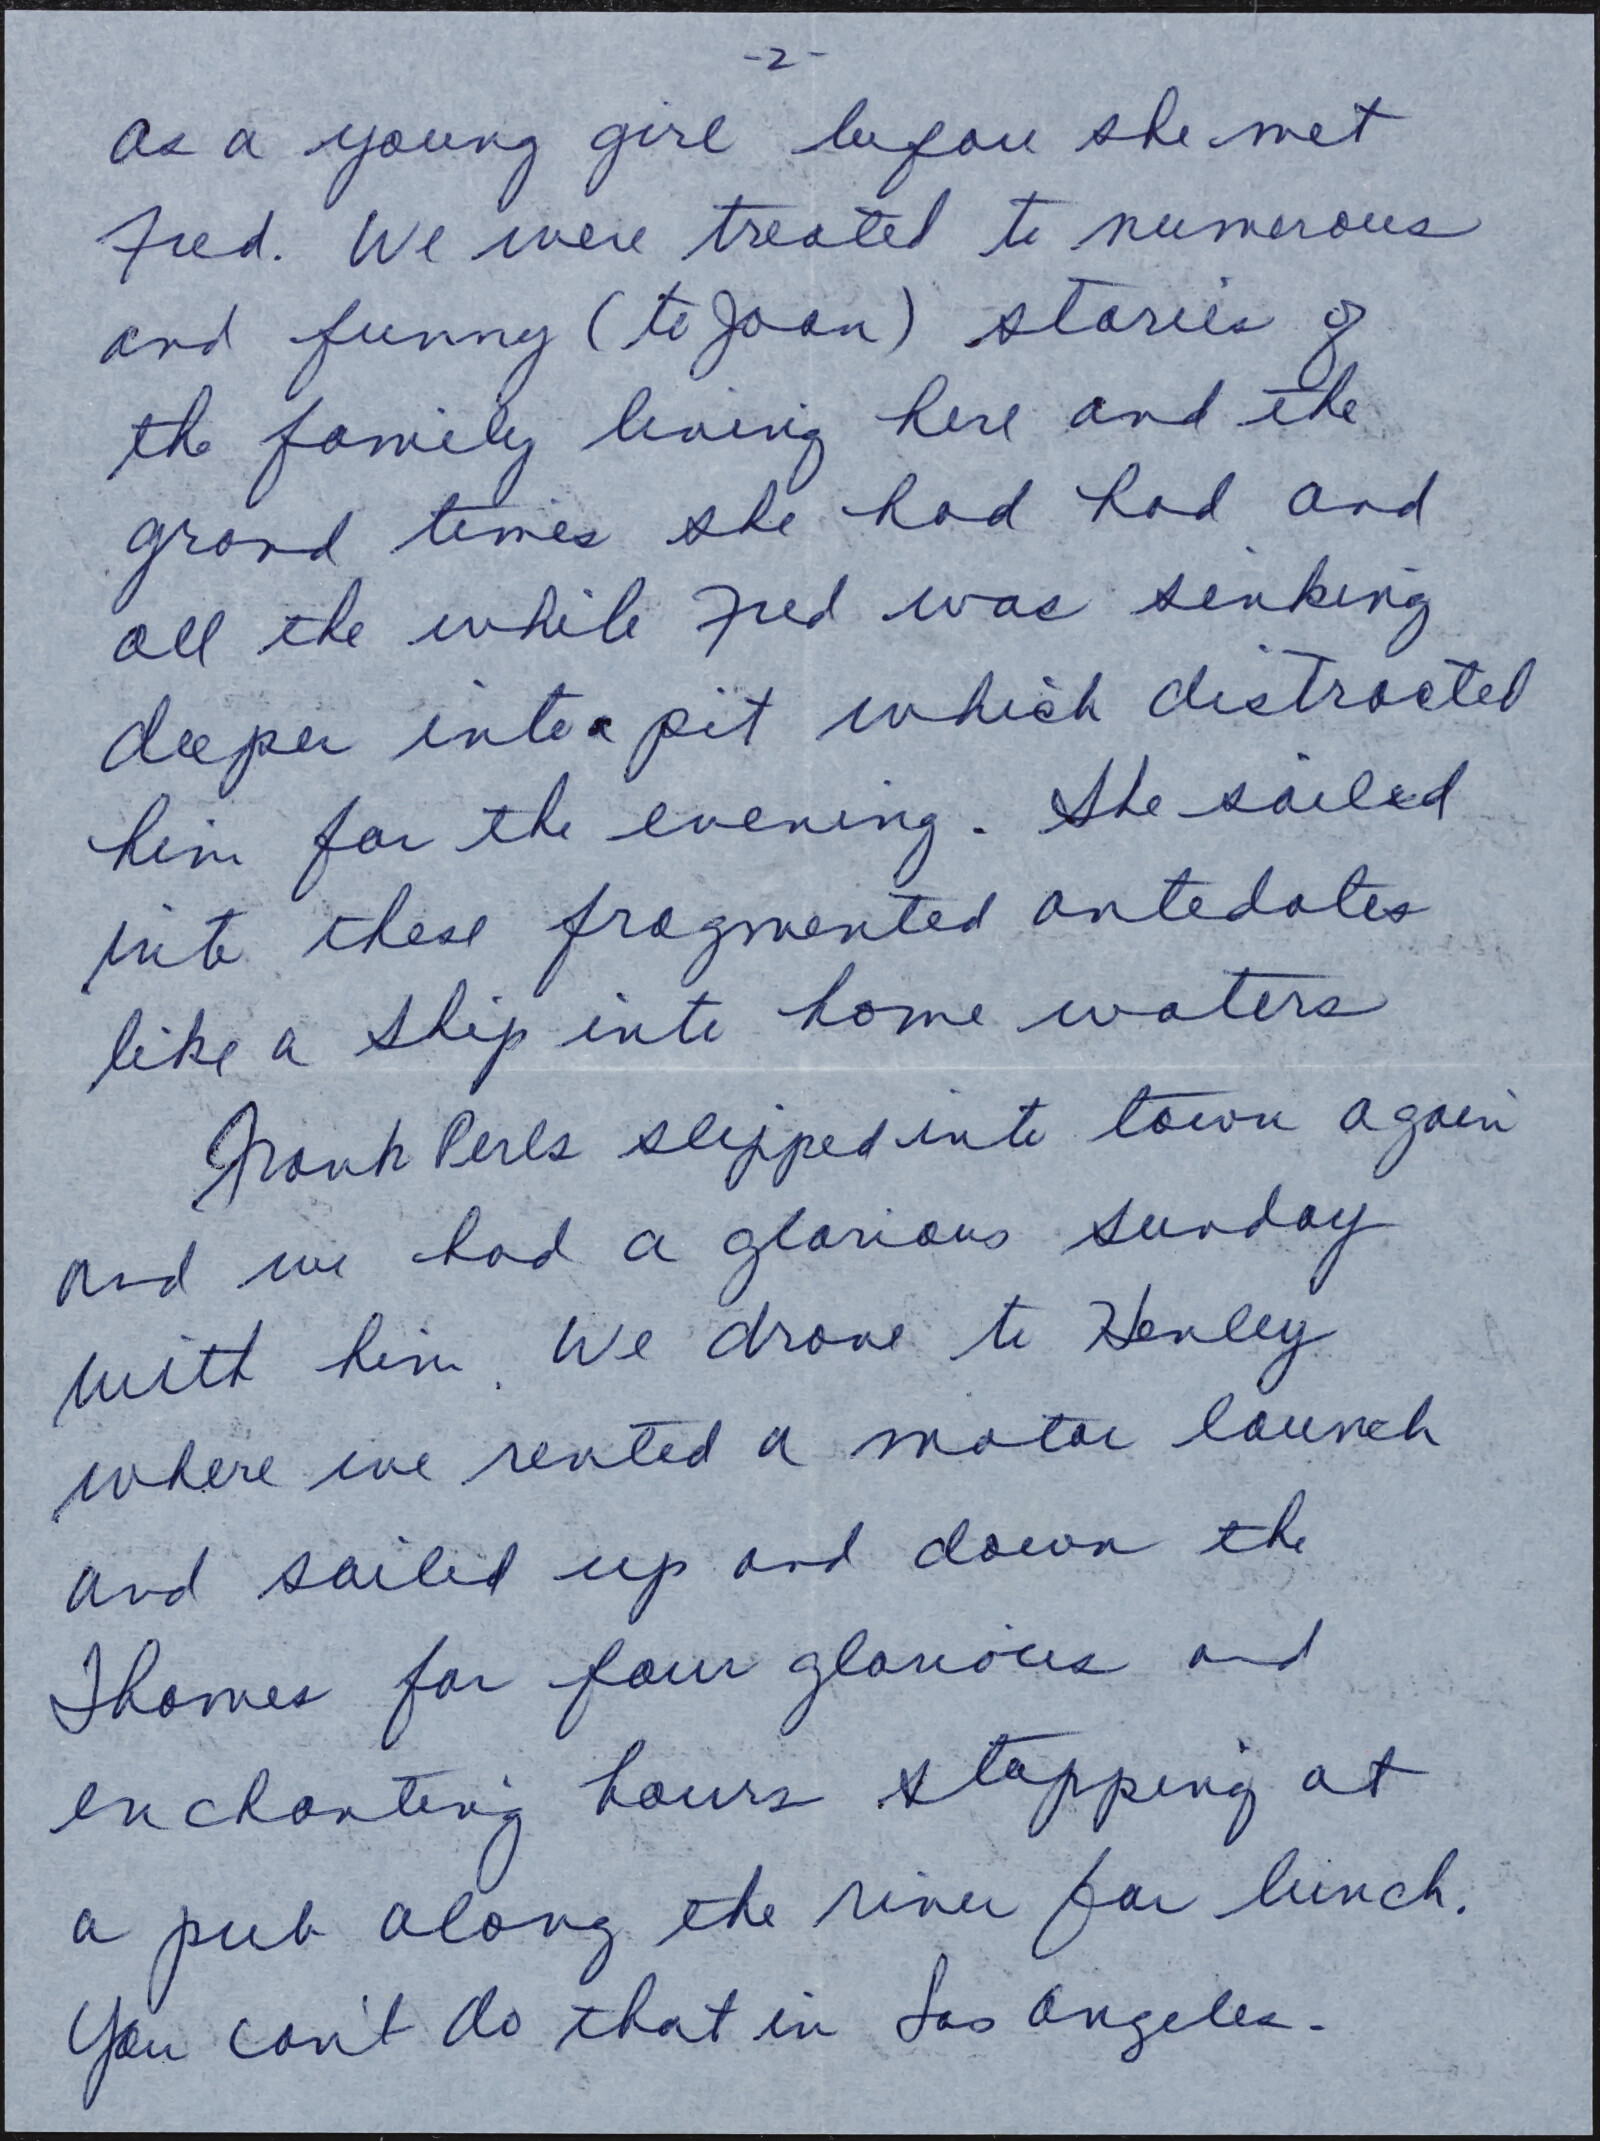 -2-
as a young girl before she met
Fred. We were treated to numerous
and funny (to Joan) stories of
the family living here and the
grand times she had had and
all the while Fred was sinking
deeper into a pit which distracted
him for the evening. She sailed
into these fragmented antedotes
like a ship into home waters
Frank Perls slipped into town again
and we had a glorious sunday
with him. We drove to Henley
where we rented a motor launch
and sailed up and down the
Thames for four glorious and
enchanting hours stopping at
a pub along the river for lunch.
You can't do that in Los Angeles.